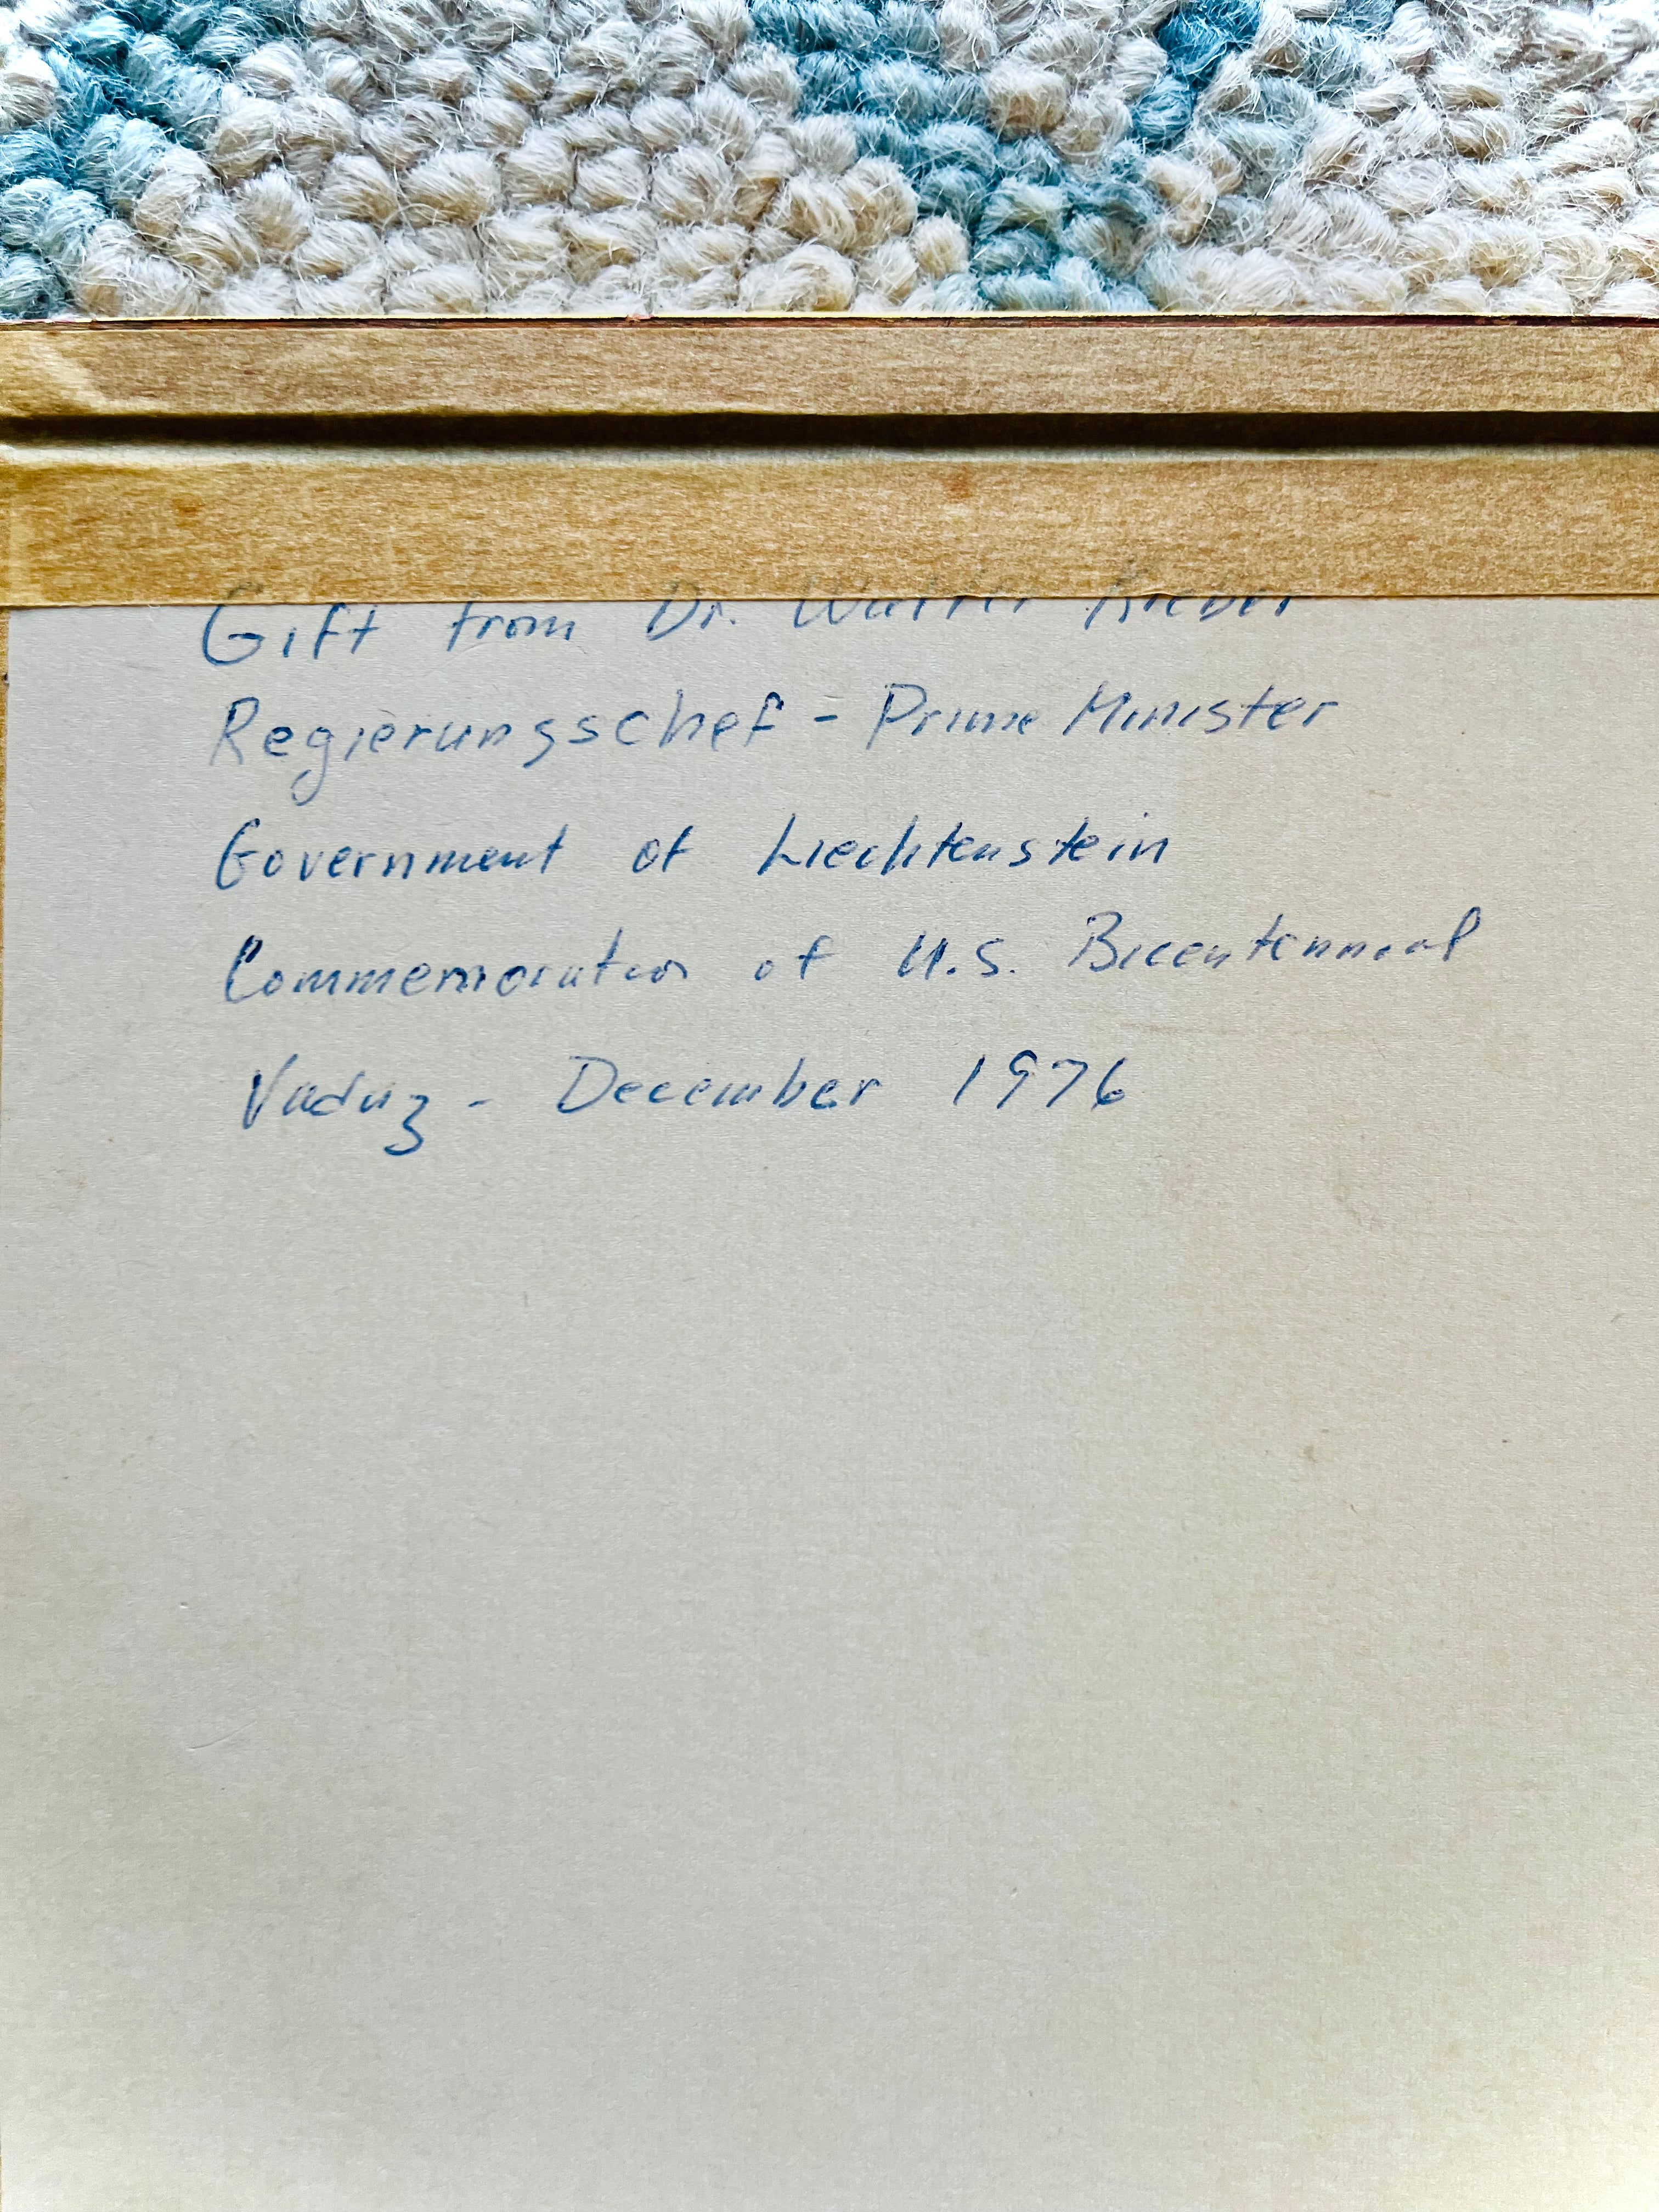 Gift from Dr. Walter Kieber
Regierungschef - Prime Minister
Government of Liechtenstein
Commemoration of U.S. Bicentennial
Vaduz - December 1976